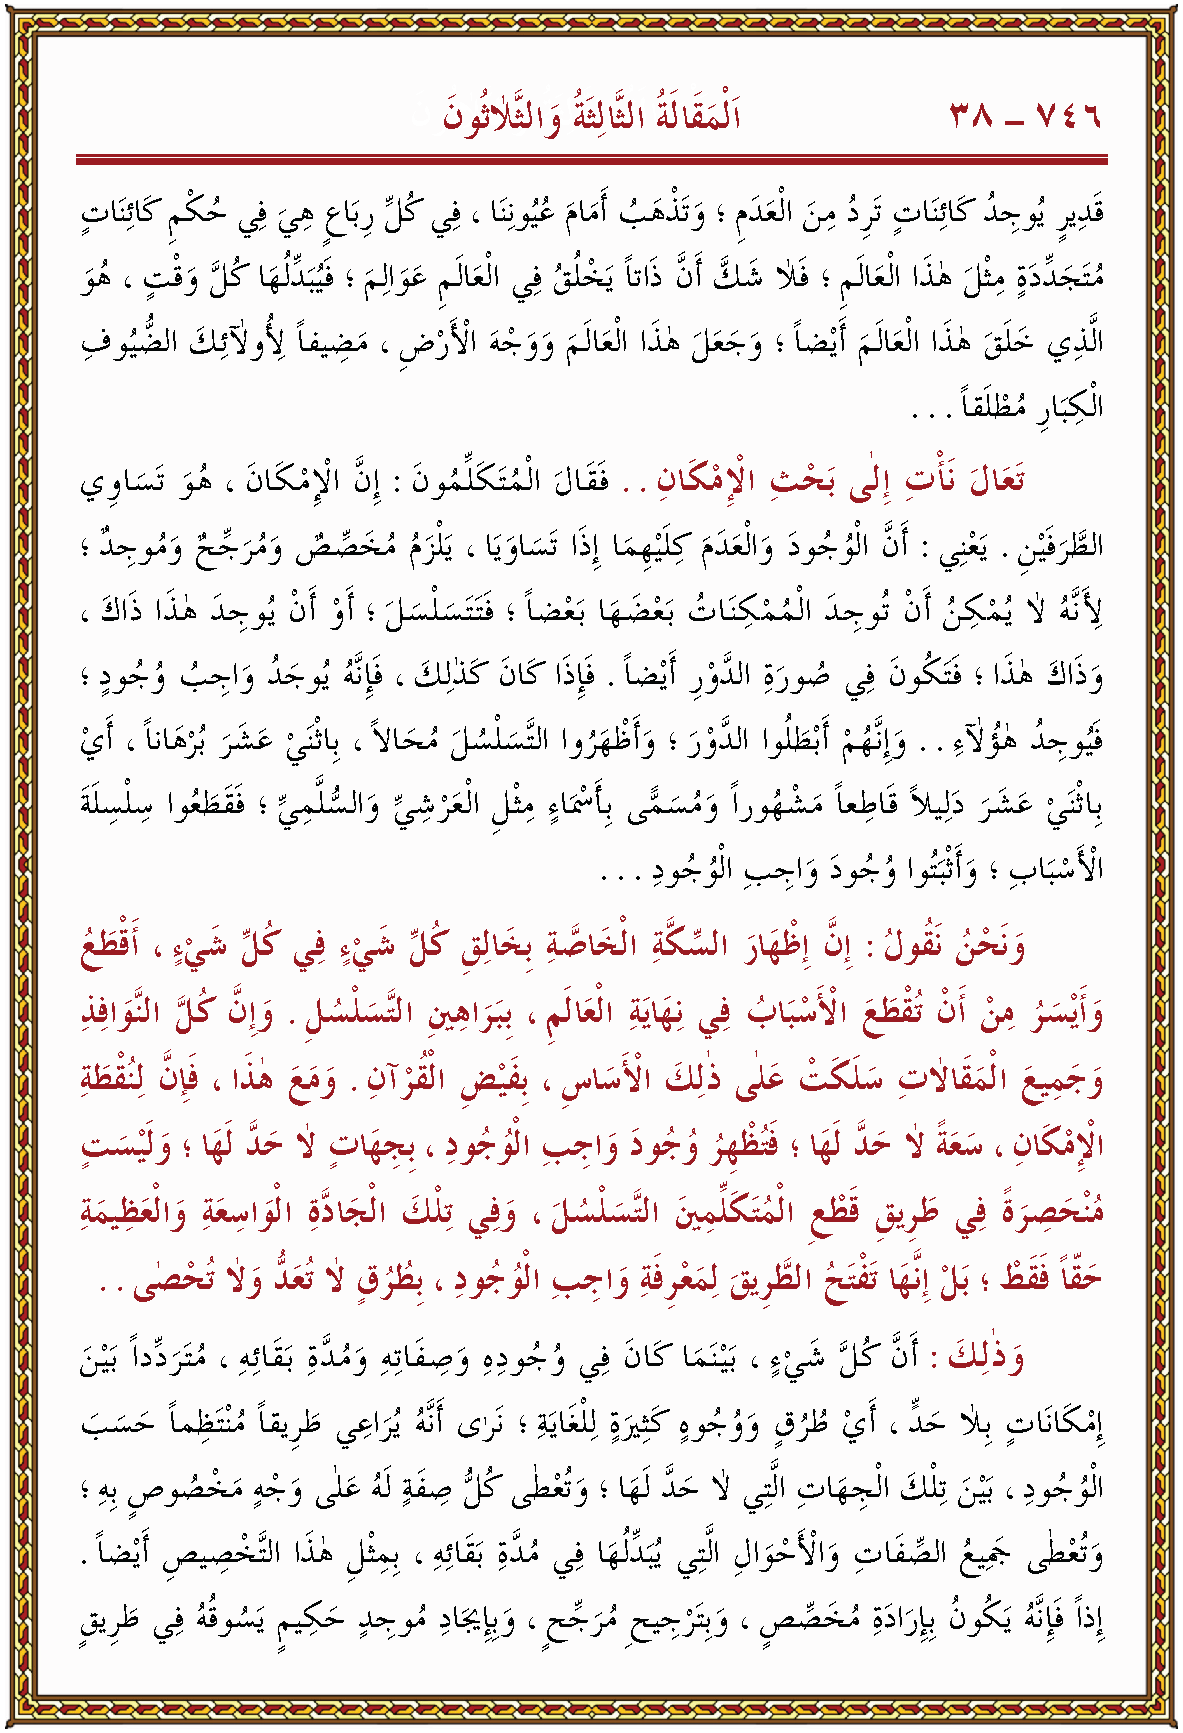 ٧٤٦ – ٣٨ اَلْمَقَالَةُ الثَّالِثَةُ وَالثَّلاٰثُونَ
قَدِيرٍ يُوجِدُ كَائِنَاتٍ تَرِدُ مِنَ الْعَدَمِ ؛ وَتَذْهَبُ أَمَامَ عُيُونِنَا ، فِي كُلِّ رِبَاعٍ هِيَ فِي حُكْمِ كَائِنَاتٍ
مُتَجَدِّدَةٍ مِثْلَ هٰذَا الْعَالَمِ ؛ فَلاٰ شَكَّ أَنَّ ذَاتاً يَخْلُقُ فِي الْعَالَمِ عَوَالِمَ ؛ فَيُبَدِّلُهَا كُلَّ وَقْتٍ ، هُوَ
الَّذِي خَلَقَ هٰذَا الْعَالَمَ أَيْضاً ؛ وَجَعَلَ هٰذَا الْعَالَمَ وَوَجْهَ الْأَرْضِ ، مَضِيفاً لِأُولاٰۤئِكَ الضُّيُوفِ
الْكِبَارِ مُطْلَقاً . . .
تَعَالَ نَأْتِ إِلٰى بَحْثِ الْإِمْكَانِ . . فَقَالَ الْمُتَكَلِّمُونَ : إِنَّ الْإِمْكَانَ ، هُوَ تَسَاوِي
الطَّرَفَيْنِ . يَعْنِي : أَنَّ الْوُجُودَ وَالْعَدَمَ كِلَيْهِمَا إِذَا تَسَاوَيَا ، يَلْزَمُ مُخَصِّصٌ وَمُرَجِّحٌ وَمُوجِدٌ ؛
لِأَنَّهُ لاٰ يُمْكِنُ أَنْ تُوجِدَ الْمُمْكِنَاتُ بَعْضَهَا بَعْضاً ؛ فَتَتَسَلْسَلَ ؛ أَوْ أَنْ يُوجِدَ هٰذَا ذَاكَ ،
وَذَاكَ هٰذَا ؛ فَتَكُونَ فِي صُورَةِ الدَّوْرِ أَيْضاً . فَإِذَا كَانَ كَذٰلِكَ ، فَإِنَّهُ يُوجَدُ وَاجِبُ وُجُودٍ ؛
فَيُوجِدُ هٰؤُلاٰۤءِ . . وَإِنَّهُمْ أَبْطَلُوا الدَّوْرَ ؛ وَأَظْهَرُوا التَّسَلْسُلَ مُحَالاً ، بِاثْنَيْ عَشَرَ بُرْهَاناً ، أَيْ
بِاثْنَيْ عَشَرَ دَلِيلاً قَاطِعاً مَشْهُوراً وَمُسَمًّى بِأَسْمَاءٍ مِثْلِ الْعَرْشِيِّ وَالسُّلَّمِيِّ ؛ فَقَطَعُوا سِلْسِلَةَ
الْأَسْبَابِ ؛ وَأَثْبَتُوا وُجُودَ وَاجِبِ الْوُجُودِ . . .
وَنَحْنُ نَقُولُ : إِنَّ إِظْهَارَ السِّكَّةِ الْخَاصَّةِ بِخَالِقِ كُلِّ شَيْءٍ فِي كُلِّ شَيْءٍ ، أَقْطَعُ
وَأَيْسَرُ مِنْ أَنْ تُقْطَعَ الْأَسْبَابُ فِي نِهَايَةِ الْعَالَمِ ، بِبَرَاهِينِ التَّسَلْسُلِ . وَإِنَّ كُلَّ النَّوَافِذِ
وَجَمِيعَ الْمَقَالاٰتِ سَلَكَتْ عَلٰى ذٰلِكَ الْأَسَاسِ ، بِفَيْضِ الْقُرْآنِ . وَمَعَ هٰذَا ، فَإِنَّ لِنُقْطَةِ
الْإِمْكَانِ ، سَعَةً لاٰ حَدَّ لَهَا ؛ فَتُظْهِرُ وُجُودَ وَاجِبِ الْوُجُودِ ، بِجِهَاتٍ لاٰ حَدَّ لَهَا ؛ وَلَيْسَتْ
مُنْحَصِرَةً فِي طَرِيقِ قَطْعِ الْمُتَكَلِّمِينَ التَّسَلْسُلَ ، وَفِي تِلْكَ الْجَادَّةِ الْوَاسِعَةِ وَالْعَظِيمَةِ
حَقّاً فَقَطْ ؛ بَلْ إِنَّهَا تَفْتَحُ الطَّرِيقَ لِمَعْرِفَةِ وَاجِبِ الْوُجُودِ ، بِطُرُقٍ لاٰ تُعَدُّ وَلاٰ تُحْصٰى . .
وَذٰلِكَ : أَنَّ كُلَّ شَيْءٍ ، بَيْنَمَا كَانَ فِي وُجُودِهِ وَصِفَاتِهِ وَمُدَّةِ بَقَائِهِ ، مُتَرَدِّداً بَيْنَ
إِمْكَانَاتٍ بِلاٰ حَدٍّ ، أَيْ طُرُقٍ وَوُجُوهٍ كَثِيرَةٍ لِلْغَايَةِ ؛ نَرٰى أَنَّهُ يُرَاعِي طَرِيقاً مُنْتَظِماً حَسَبَ
الْوُجُودِ ، بَيْنَ تِلْكَ الْجِهَاتِ الَّتِي لاٰ حَدَّ لَهَا ؛ وَتُعْطٰى كُلُّ صِفَةٍ لَهُ عَلٰى وَجْهٍ مَخْصُوصٍ بِهِ ؛
وَتُعْطٰى جَمِيعُ الصِّفَاتِ وَالْأَحْوَالِ الَّتِي يُبَدِّلُهَا فِي مُدَّةِ بَقَائِهِ ، بِمِثْلِ هٰذَا التَّخْصِيصِ أَيْضاً .
إِذاً فَإِنَّهُ يَكُونُ بِإِرَادَةِ مُخَصِّصٍ ، وَبِتَرْجِيحِ مُرَجِّحٍ ، وَبِإِيجَادِ مُوجِدٍ حَكِيمٍ يَسُوقُهُ فِي طَرِيقٍ